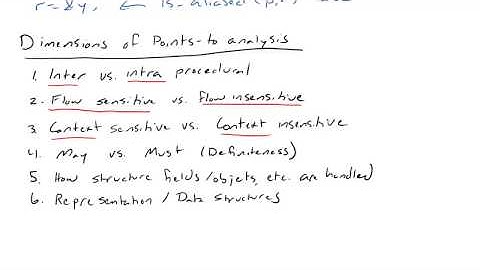 r = &y, ← is-aliased (p,
Dimensions of Points-to analysis
1. Inter vs. intra procedural
2. Flow sensitive vs. flow insensitive
3. Context sensitive vs. Context insensitive
4. May vs. Must (Definiteness)
5. How structure fields/objets, etc. are handled)
6. Representation / Data structures